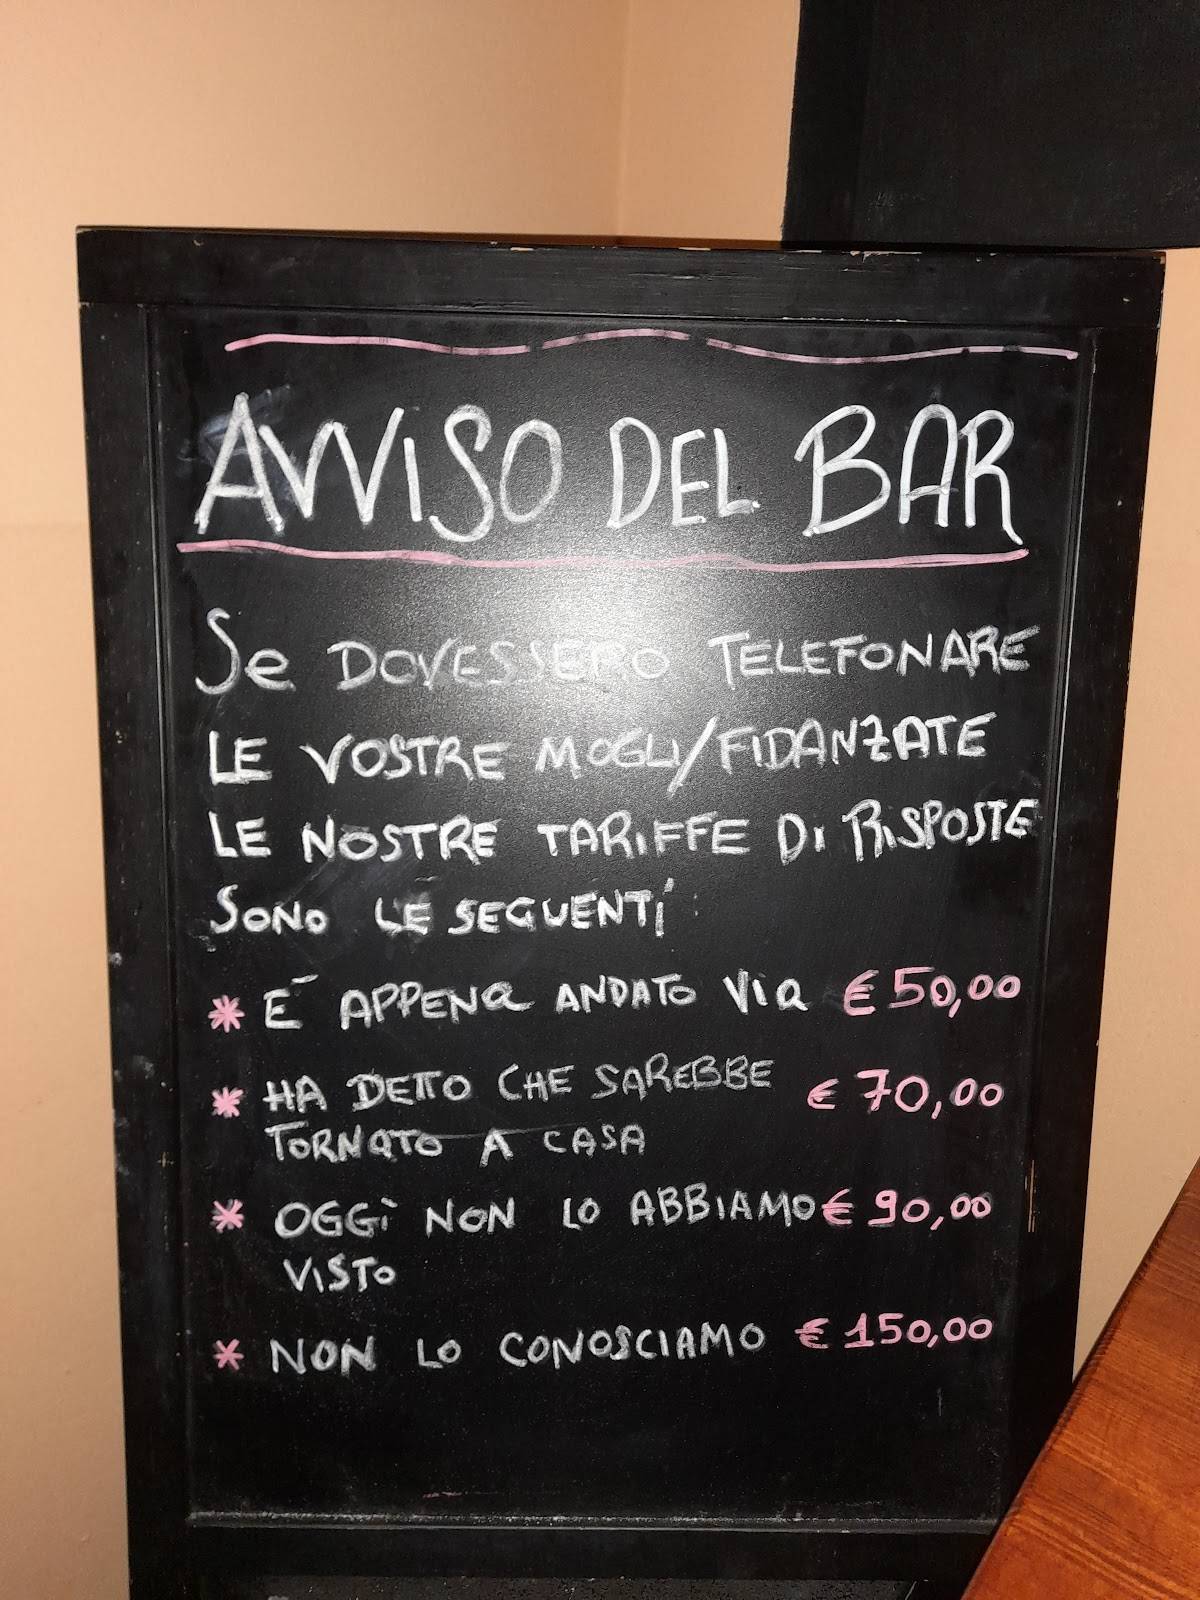 AVVISO DEL BAR
Se DOVESSERO TELEFONARE
LE VOSTRE MOGLI/FIDANZATE
LE NOSTRE TARIFFE DI RISPOSTE
SONO LE SEGUENTI:
* E' APPENA ANDATO VIA € 50,00
* HA DETTO CHE SAREBBE € 70,00
TORNATO A CASA
* OGGI NON LO ABBIAMO € 90,00
VISTO
* NON LO CONOSCIAMO € 150,00